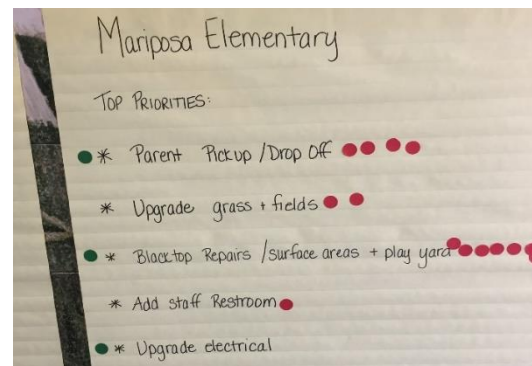 Mariposa Elementary
TOP PRIORITIES:
* Parent Pickup / Drop Off
* Upgrade grass + fields
* Blacktop Repairs / surface areas + play yard
* Add staff Restroom
* Upgrade electrical